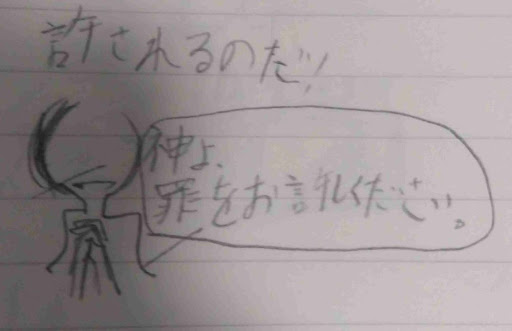 許されるのだ!
神よ、
罪をお許しください。